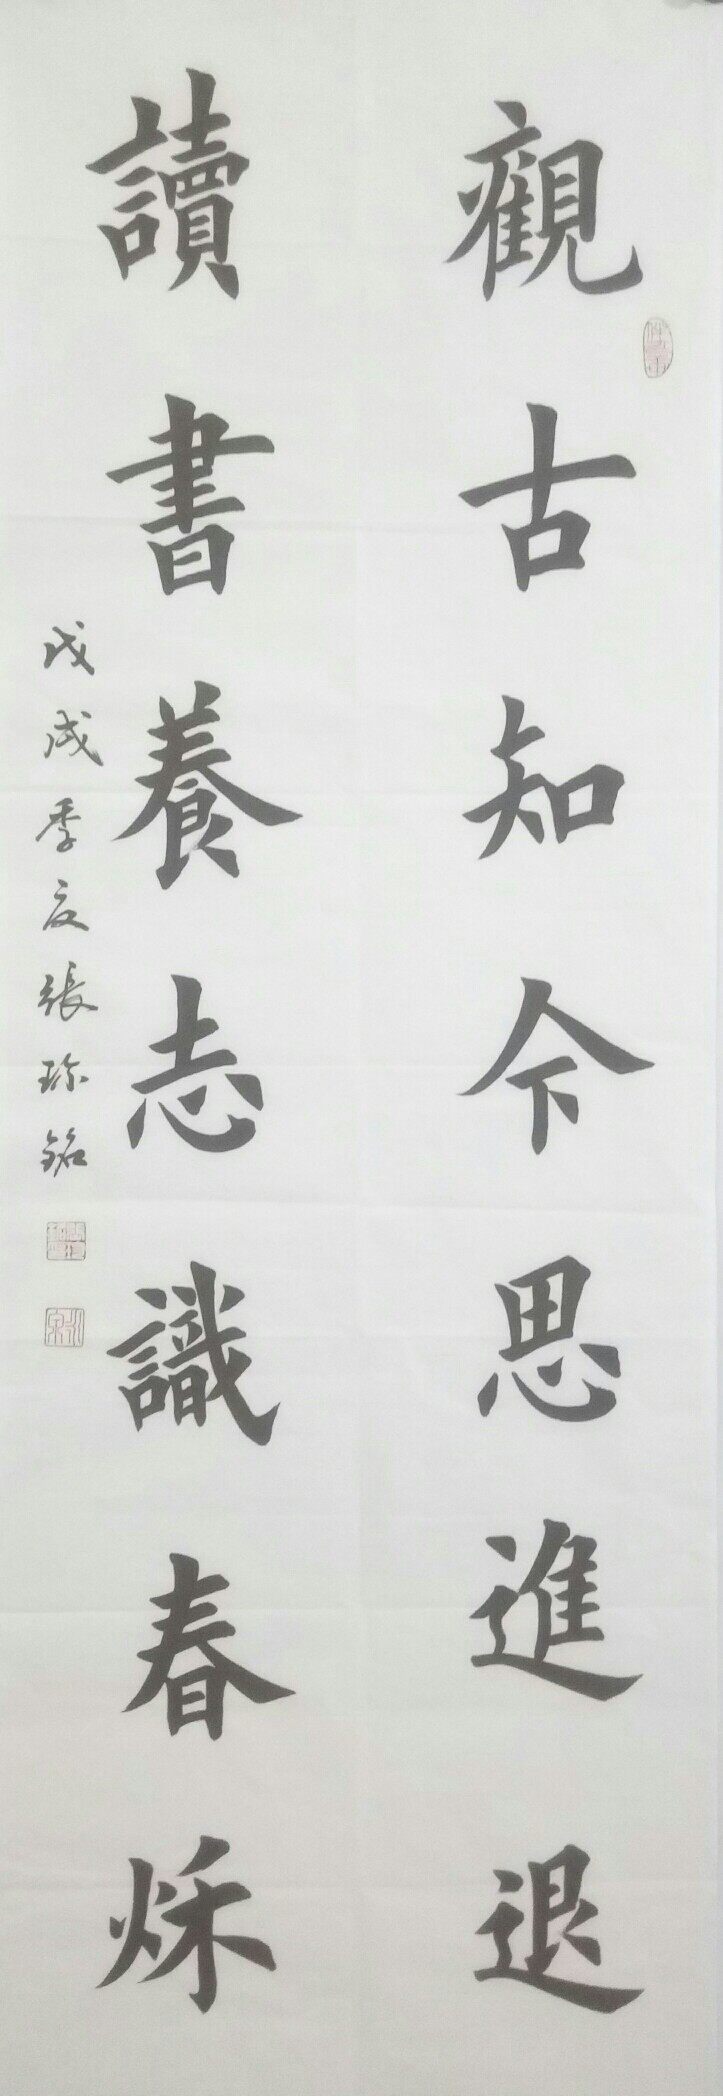 觀古知今思進退
讀書養志識春秌
戊戌季夏張珍銘